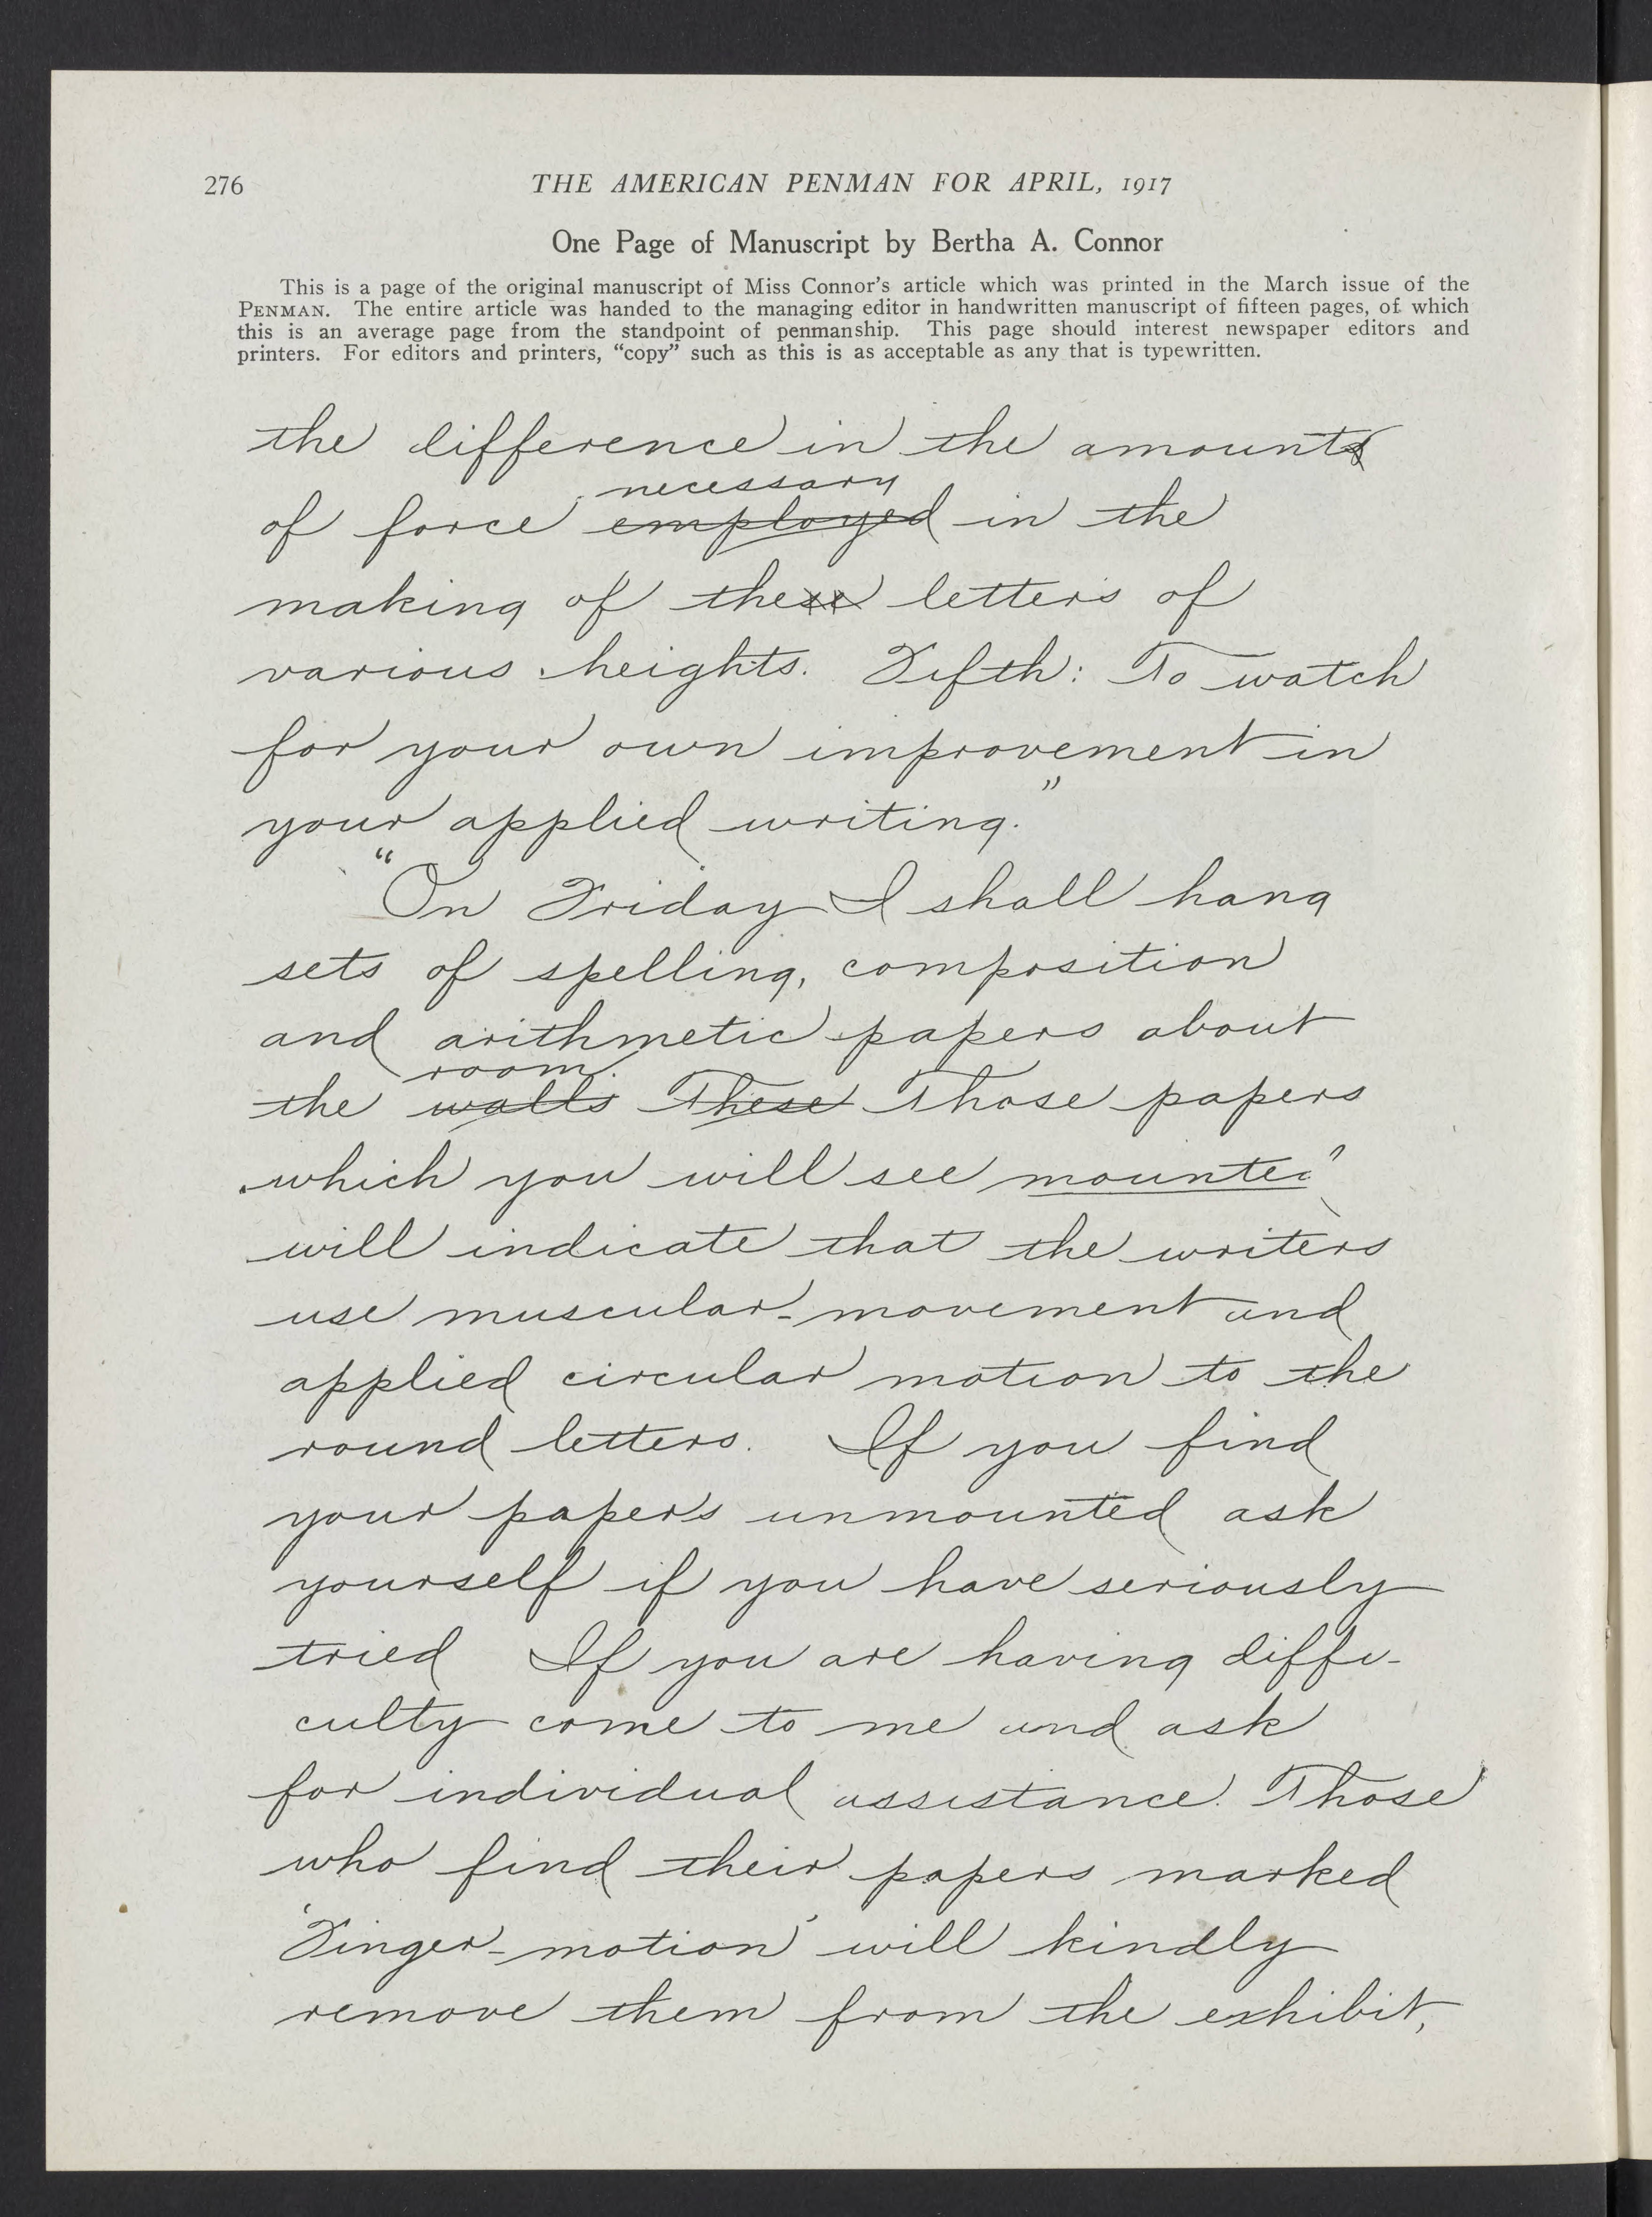 276
THE AMERICAN PENMAN FOR APRIL, 1917
One Page of Manuscript by Bertha A. Connor
This is a page of the original manuscript of Miss Connor's article which was printed in the March issue of the
PENMAN. The entire article was handed to the managing editor in handwritten manuscript of fifteen pages, of which
this is an average page from the standpoint of penmanship. This page should interest newspaper editors and
printers. For editors and printers, "copy" such as this is as acceptable as any that is typewritten.
the difference in the amounts
necessary
of force employed in the
making of these letters of
various heights. Fifth: To watch
for your own improvement in
your applied writing."
"On Friday I shall hang
sets of spelling, composition
and arithmetic papers about
room.
the walls These Those papers
which you will see mounted
will indicate that the writers
use muscular-movement and
applied circular motion to the
round letters. If you find
your papers unmounted ask
yourself if you have seriously
tried If you are having diffi-
culty come to me and ask
for individual assistance. Those
who find their papers marked
'Finger-motion' will kindly
remove them from the exhibit,